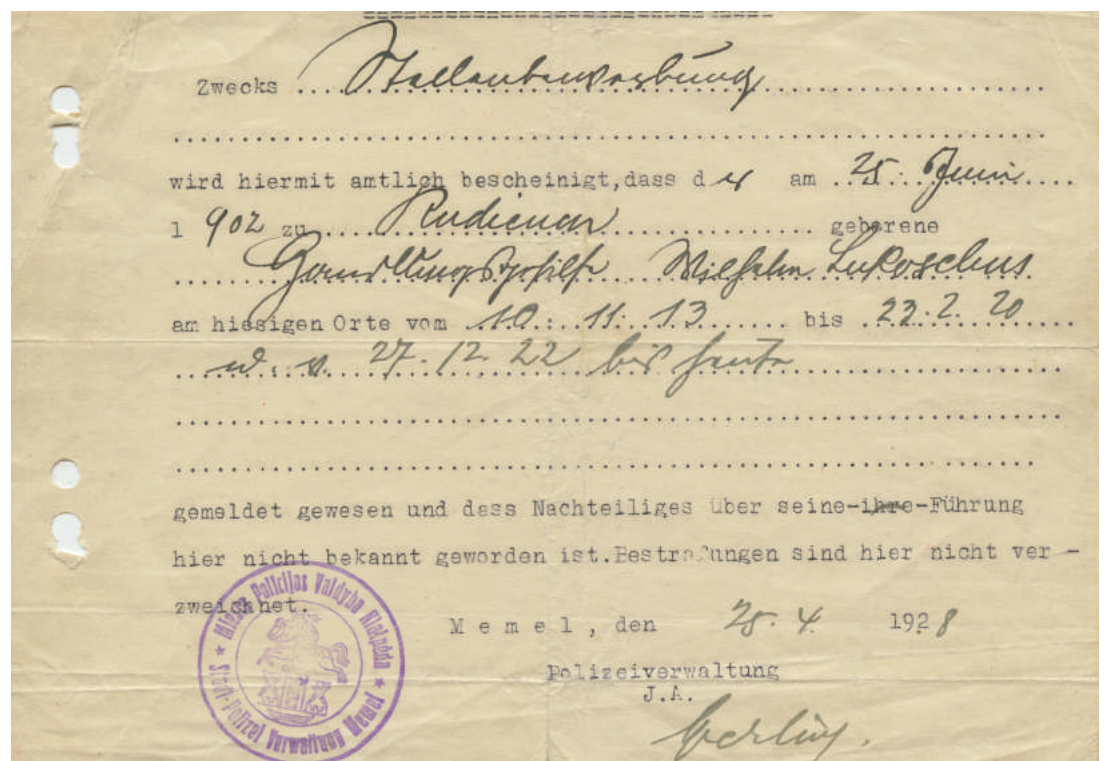 Zwecks ....Stellenbewerbung....
wird hiermit amtlich bescheinigt,dass der am 25. Juni
1 902 zu ....Rudienen.... geborene
Handlungsgehilfe Wilhelm Lukoschus
am hiesigen Orte vom 10. 11. 13 bis 22. 2. 20
u. v. 27. 12. 22 bis heute
gemeldet gewesen und dass Nachteiliges über seine-ihre-Führung
hier nicht bekannt geworden ist.Bestrafungen sind hier nicht ver-
zweichnet.
Memel, den 25. 4. 1928
Polizeiverwaltung
J.A.
Miesto Policijos Valdyba Klaipėda
Stadt-Polizei Verwaltung Memel